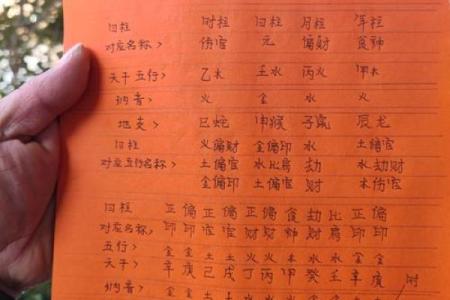 日柱 时柱 日柱 月柱 年柱
对应名称> 伤官 元 偏财 食神
天干五行> 乙木 壬水 丙火 甲木
纳音> 火 金 水 火
地支> 巳蛇 申猴 子鼠 辰龙
日柱 火偏财 金偏印 水 土偏官
对应五行名称> 土偏官 水比肩 劫 水劫财
金偏印 土偏官 财 木伤官
日柱 正 偏 正 偏 正 偏 食 劫 比 正 偏
对应名称> 印 印 官 官 财 财 神 财 肩 印 印
五行> 金 金 土 土 火 火 木 水 水 金 金
天干> 辛 庚 己 戊 丁 丙 甲 癸 壬 辛 庚 时
纳音 金 土